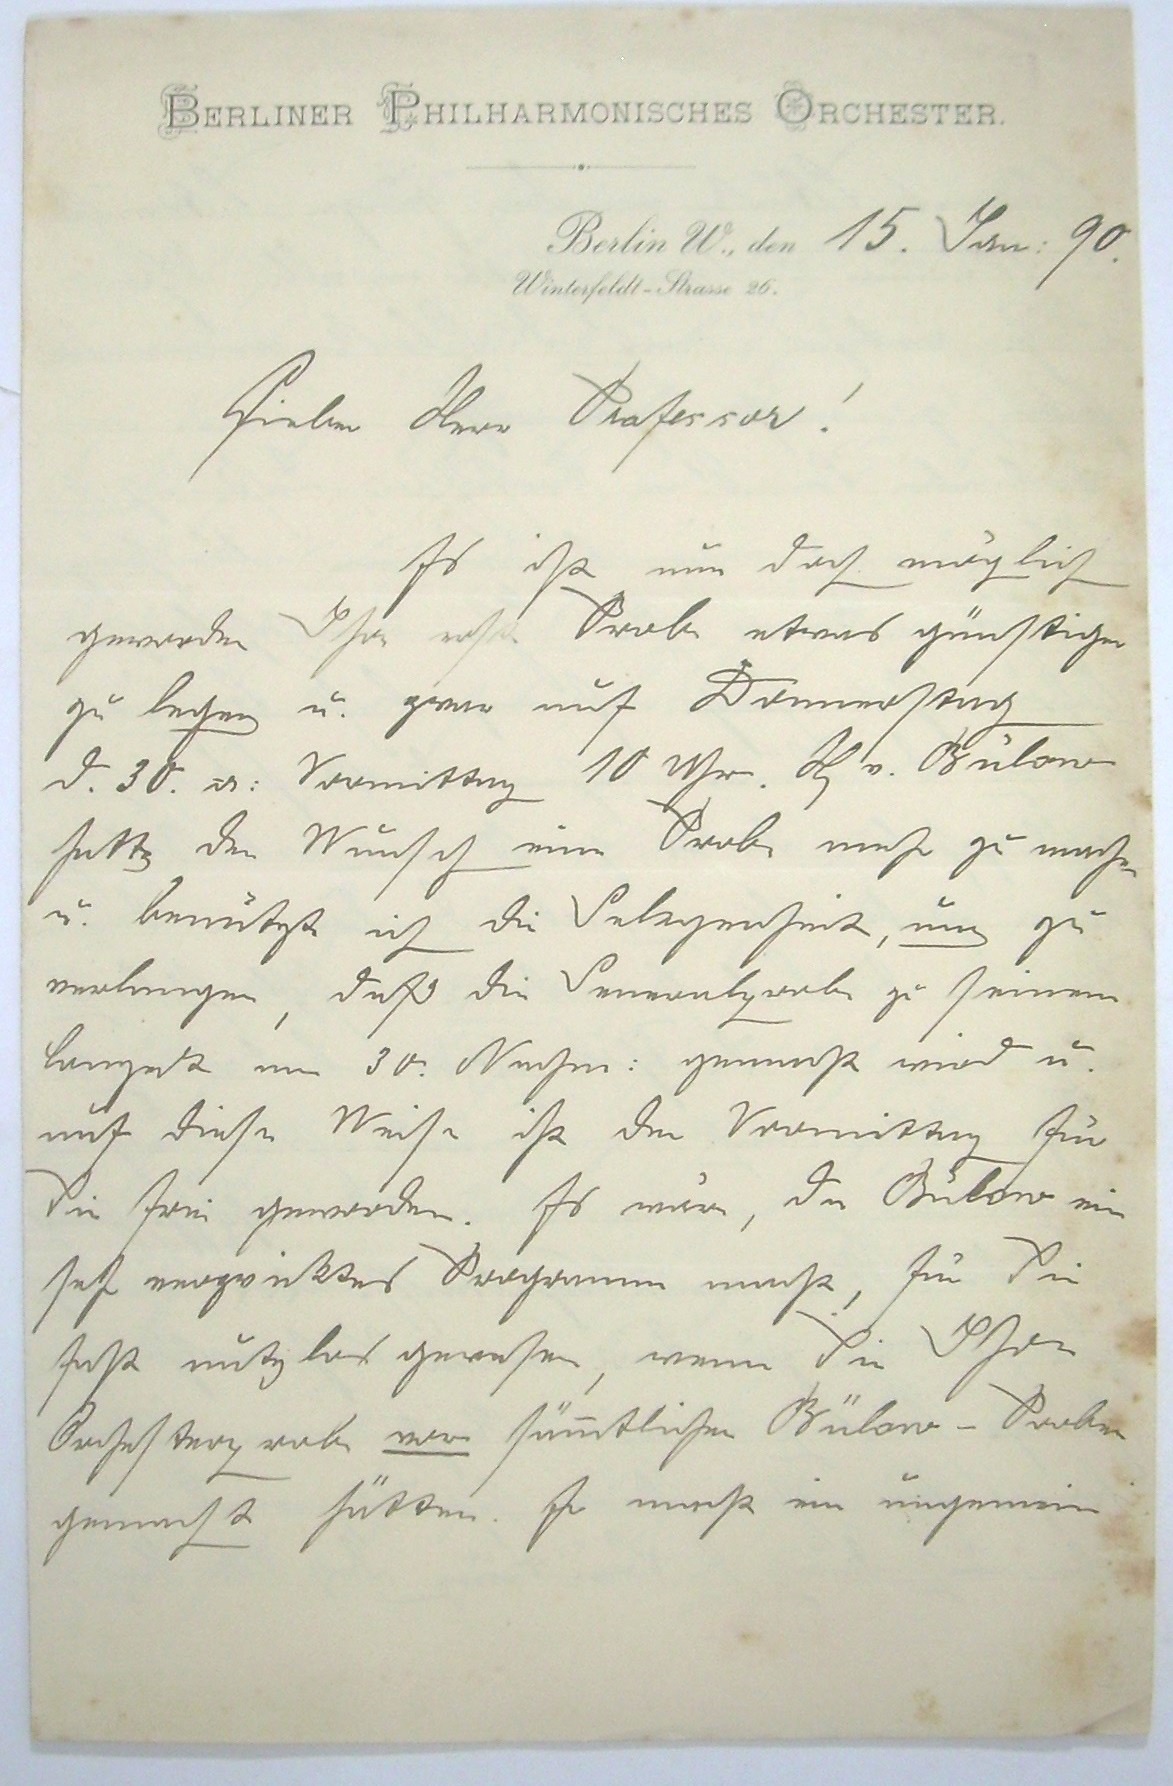 BERLINER PHILHARMONISCHES ORCHESTER.
Berlin W., den 15. Jan: 90.
Winterfeldt-Strasse 26.
Lieber Herr Professor!
Es ist nun doch möglich
geworden Ihre erste Probe etwas günstiger
zu legen u. zwar auf Donnerstag
d. 30. cr: Vormittag 10 Uhr. H v. Bülow
hatte den Wunsch eine Probe mehr zu machen
u. benützte ich die Gelegenheit, um zu
verlangen, daß die Generalprobe zu seinem
Conzert am 30. Nachm: gemacht wird u.
auf diese Weise ist der Vormittag für
Sie frei geworden. Es wäre, da Bülow ein
sehr verzwicktes Programm macht, für Sie
fast nutzlos gewesen, wenn Sie Ihre
Orchesterprobe vor sämmtlichen Bülow-Proben
gemacht hätten. Er macht ein ungemein